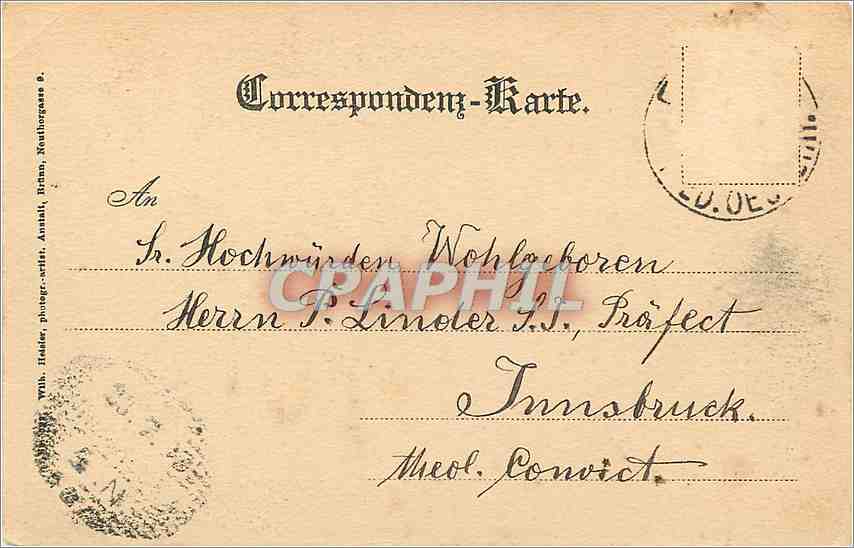 Correspondenz-Karte.
An
Sr. Hochwürden Wohlgeboren
Herrn P. Linder S.J., Präfect
Innsbruck.
theol. Convict.
Wilh. Heisler, photogr.-artist. Anstalt, Brünn, Neuthorgasse 9.
CPAPHIL